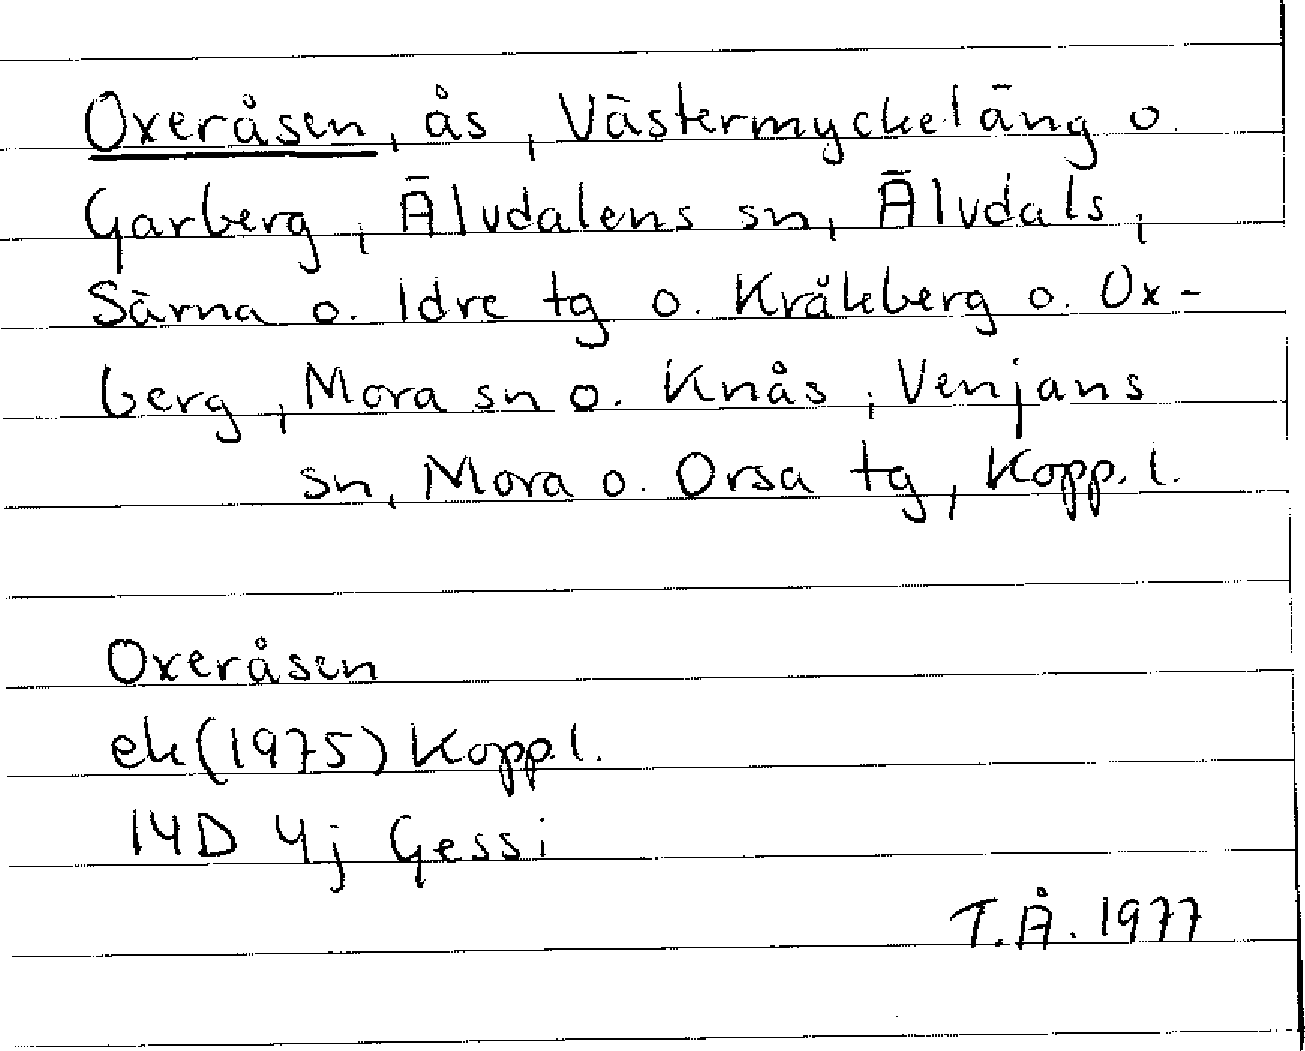 Oxeråsen, ås, Västermyckeläng o.
Garberg, Älvdalens sn, Älvdals,
Särna o. Idre tg o. Kråkberg o. Ox-
berg, Mora sn o. Knås, Venjans
sn, Mora o. Orsa tg, Kopp. l.
Oxeråsen
ek (1975) Kopp l.
14D 4j Gessi
T.Å. 1977